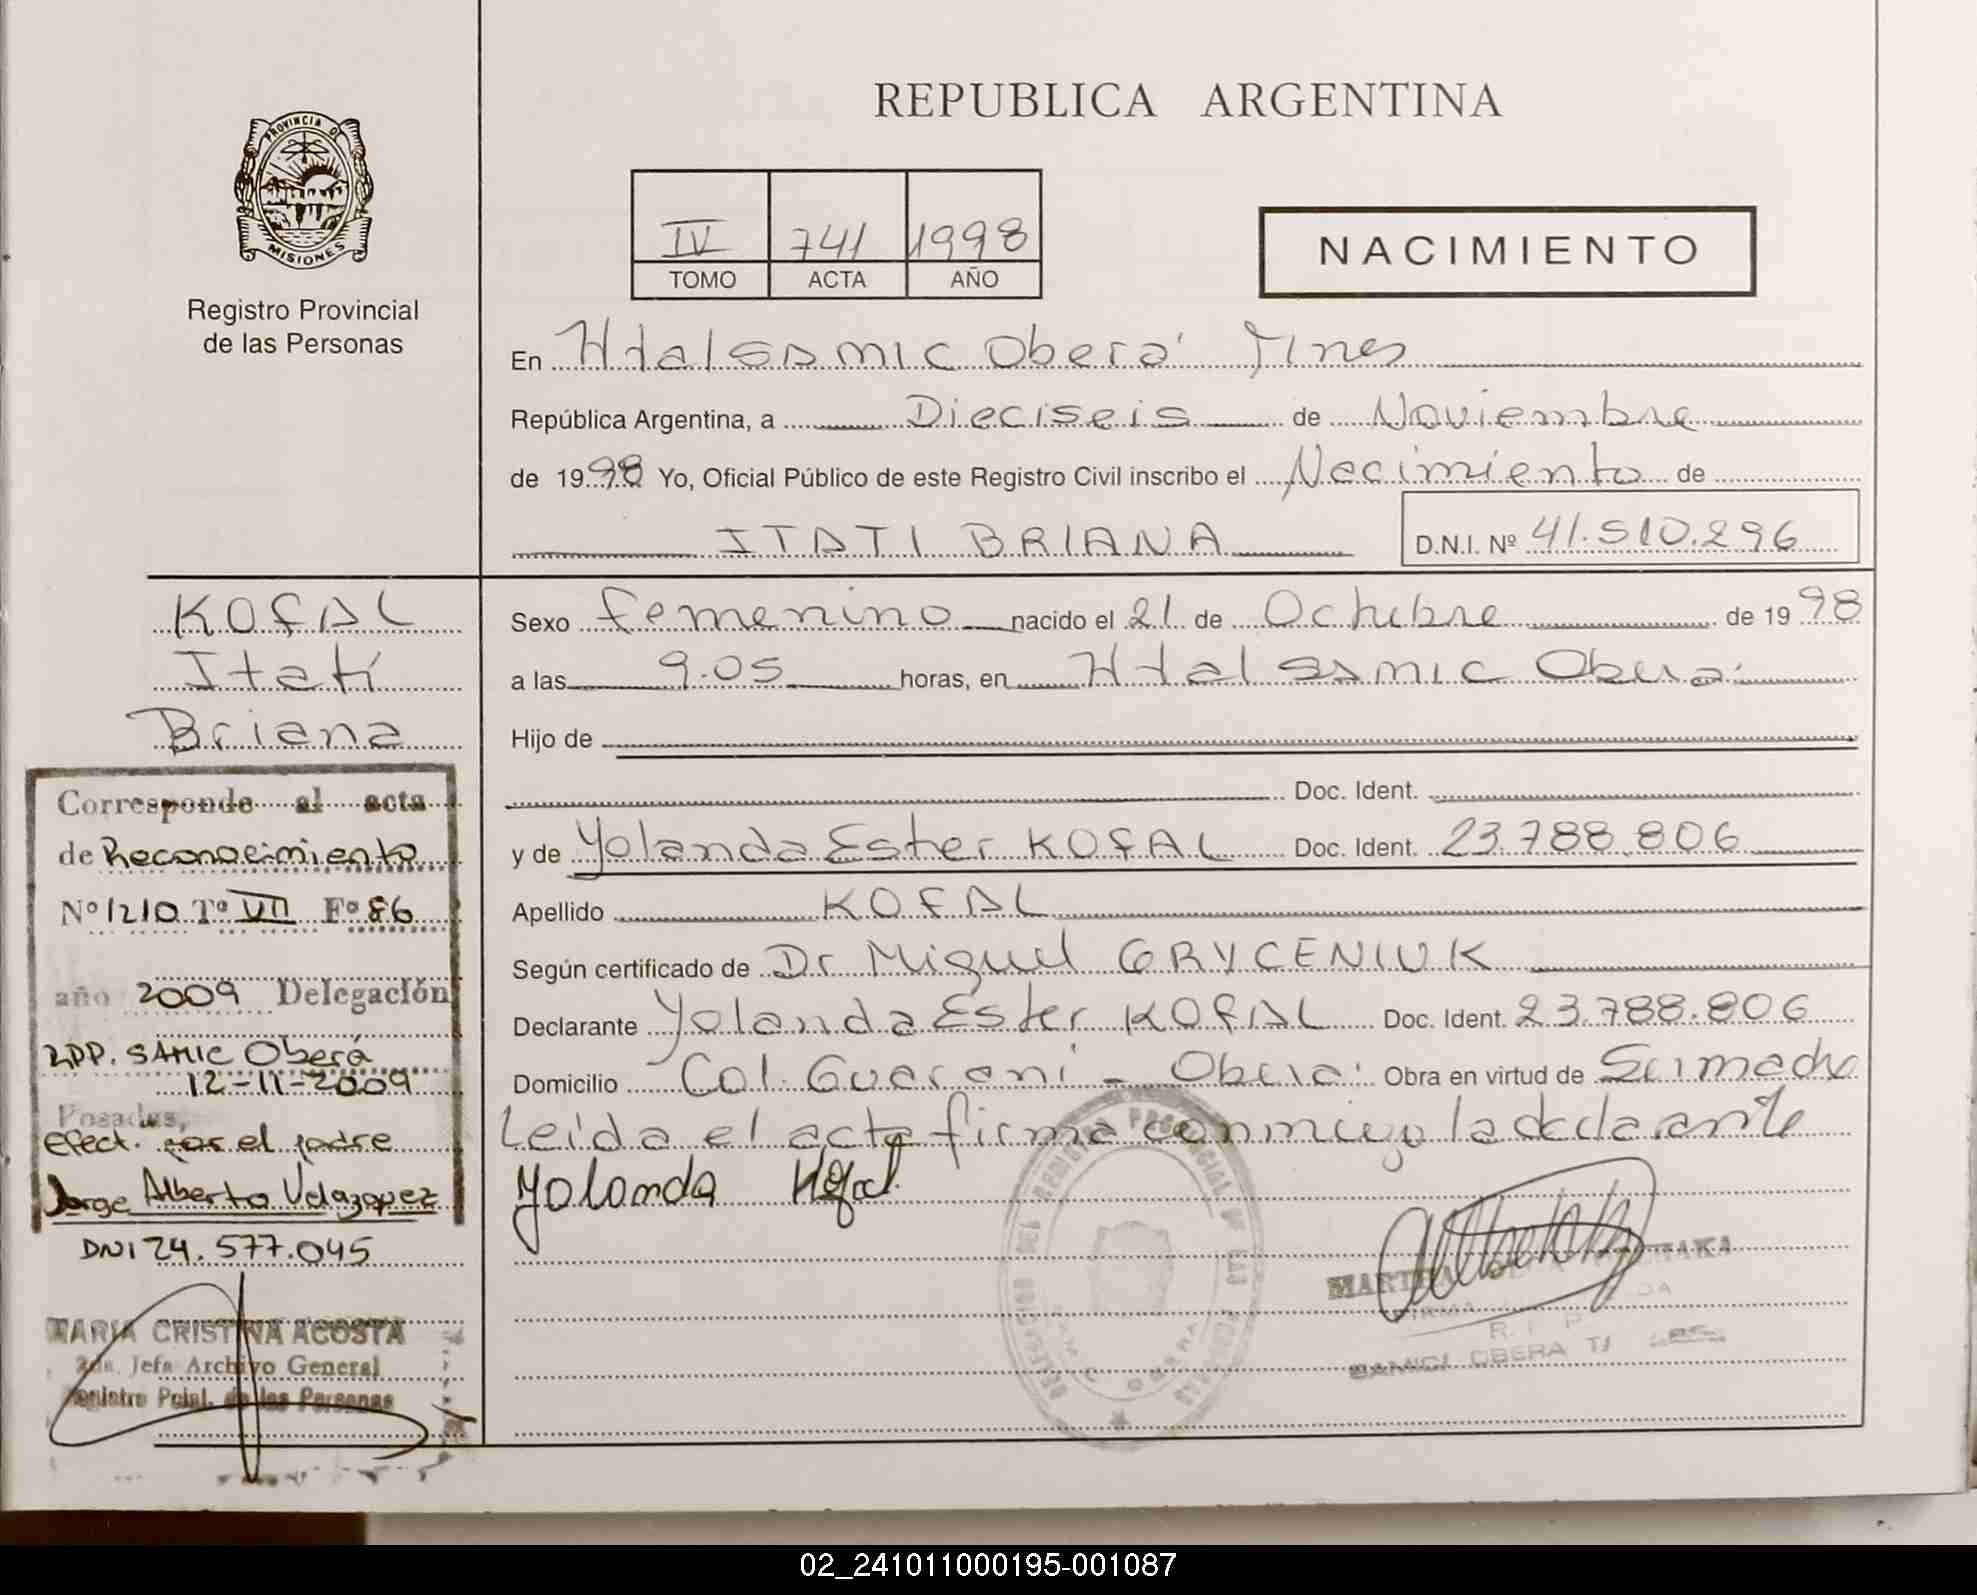 REPUBLICA ARGENTINA
PROVINCIA DE
MISIONES
Registro Provincial
de las Personas
IV 741 1998
TOMO ACTA AÑO
NACIMIENTO
En Htal SAMIC Oberá Mnes
República Argentina, a Dieciseis de Noviembre
de 1998 Yo, Oficial Público de este Registro Civil inscribo el Nacimiento de
ITATI BRIANA D.N.I. Nº 41.510.296
KOFAL
Itatí
Briana
Sexo femenino nacido el 21 de Octubre de 1998
a las 9.05 horas, en Htal SAMIC Oberá
Hijo de
Doc. Ident.
y de Yolanda Ester KOFAL Doc. Ident. 23.788.806
Apellido KOFAL
Según certificado de Dr Miguel GRYCENIUK
Declarante Yolanda Ester KOFAL Doc. Ident. 23.788.806
Domicilio Col. Guarani - Oberá Obra en virtud de Ser madre
Leida el acta firma conmigo la declarante
Yolanda Kofal
Corresponde al acta
de Reconocimiento
Nº 1210 Tº VII Fº 86
año 2009 Delegación
RPP. SAMIC Oberá
12-11-2009
Posadas,
efect. por el padre
Jorge Alberto Velazquez
DNI 24.577.045
MARIA CRISTINA ACOSTA
2da. Jefa Archivo General
Registro Pcial. de las Personas
MARTHA
R.
OBERA
REGISTRO PROVINCIAL DE LAS
DELEGACION DEL
OBERA
02_241011000195-001087